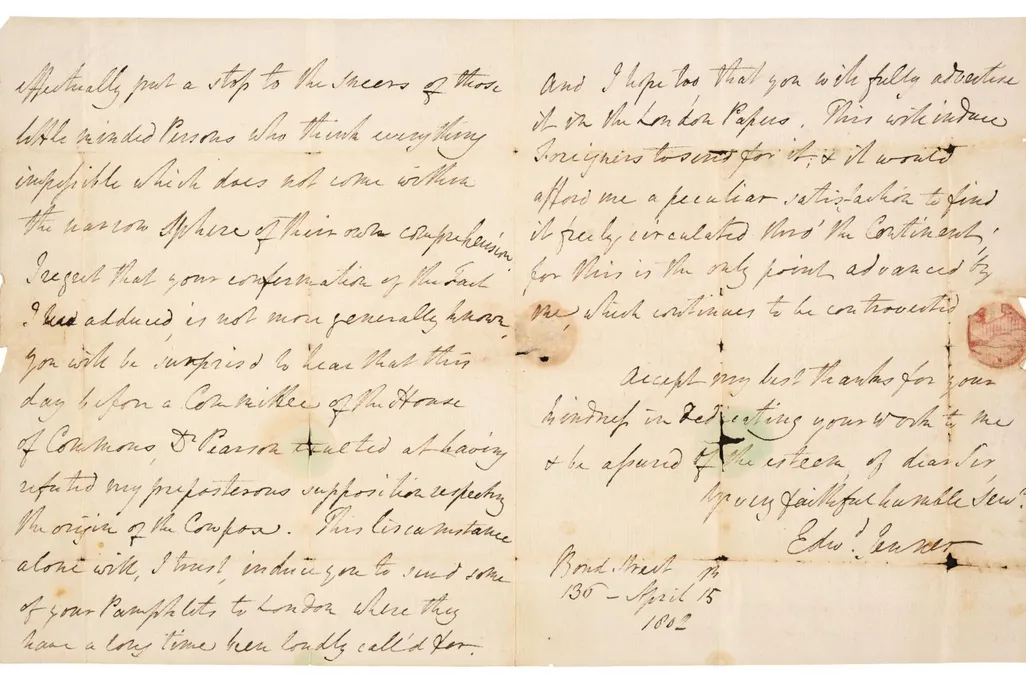 effectually put a stop to the sneers of those
little minded Persons who think everything
impossible which does not come within
the narrow Sphere of their own comprehension
I regret that your confirmation of the Fact
I had adduced, is not more generally known,
you will be surprised to hear that this
day before a Committee of the House
of Commons, Dr Pearson exulted at having
refuted my preposterous supposition respecting
the origin of the Cowpox. This Circumstance
alone will, I trust, induce you to send some
of your Pamphlets to London where they
have a long time been loudly call'd for.
And I hope too that you will fully advertise
it in the London Papers. This will induce
Foreigners to send for it, & it would
afford me a peculiar satisfaction to find
it freely circulated thro' the Continent;
for this is the only point advanced by
me, which continues to be controverted
Accept my best thanks for your
kindness in Dedicating your Work to me
& be assured of the esteem of dear Sir,
Yr very faithful humble Servt
Edwd Jenner
Bond Street
136 - April 15th
1802